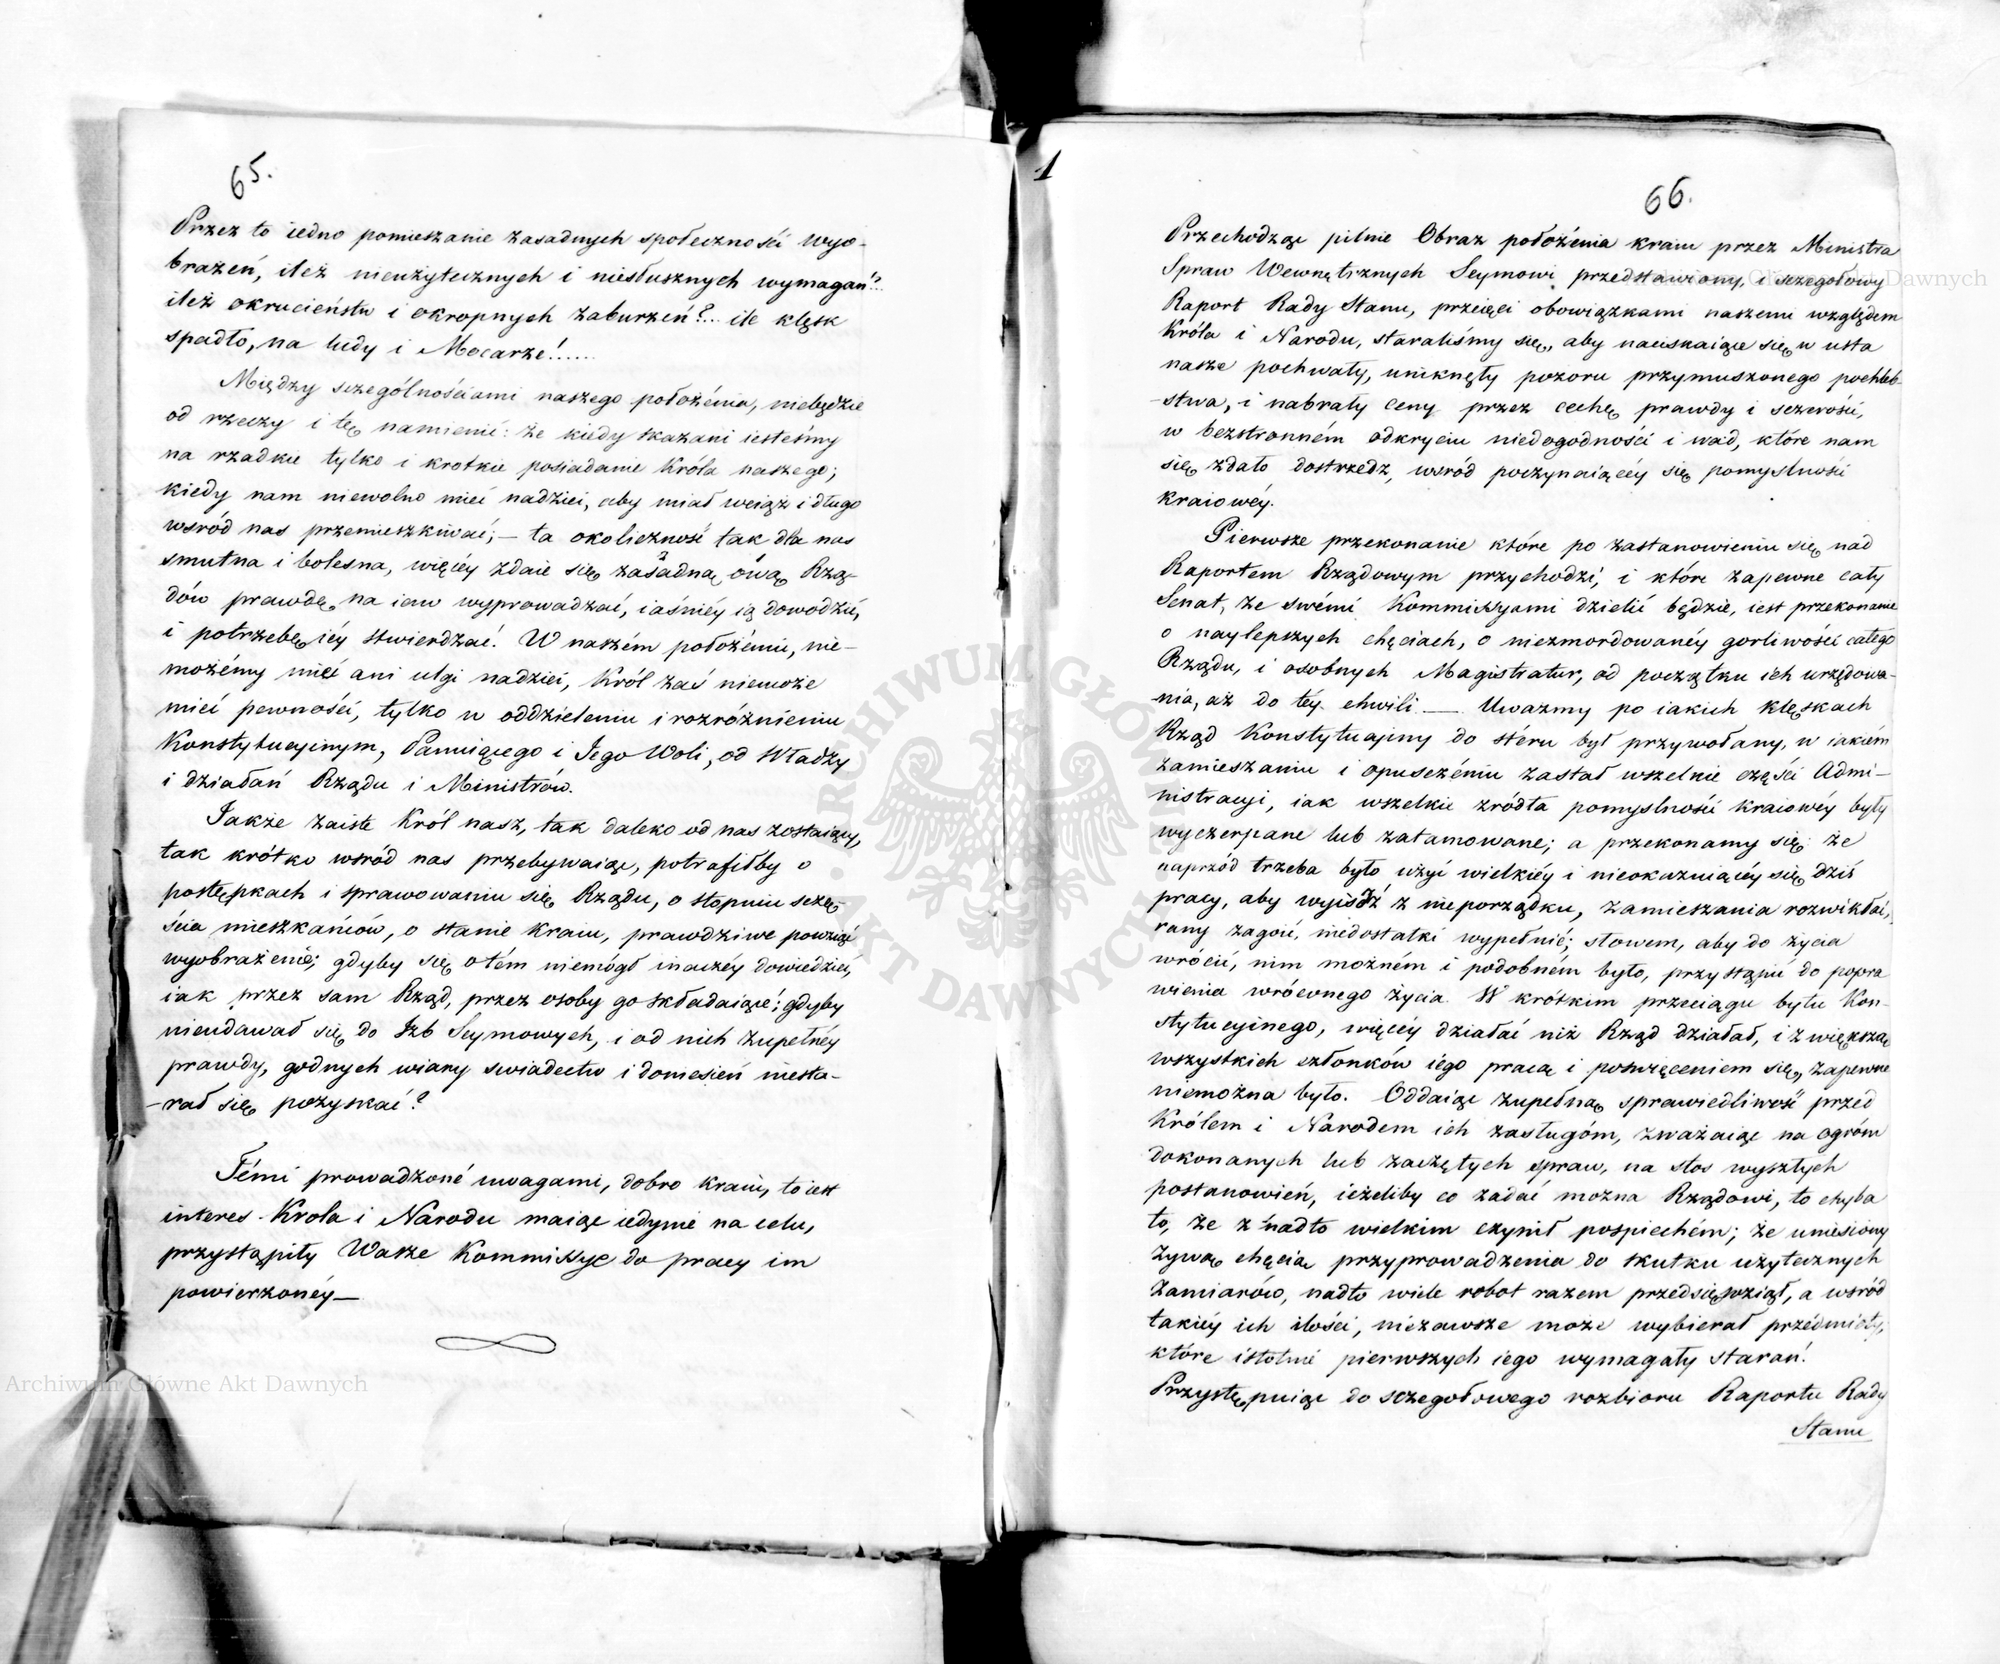 65.
Przez to iedno pomieszanie zasadnych społeczności wyo-
brażeń, ileż nieużytecznych i niesłusznych wymagań?..
ileż okrucieństw i okropnych zaburzeń?... ile klęsk
spadło, na ludy i Mocarze!......
Między szczególnościami naszego położenia, niebędzie
od rzeczy i tę namienić: że kiedy skazani iesteśmy
na rzadkie tylko i krotkie posiadanie Króla naszego;
kiedy nam niewolno mieć nadziei, aby miał wciąż i długo
wsród nas przemieszkiwać; — ta okoliczność tak dla nas
smutna i bolesna, więcéy zdaie się zasadną ową Rzą-
dów prawdę na iaw wyprowadzać, iaśniéy ią dowodzić,
i potrzebę iéy stwierdzać. W naszém położéniu, nie-
możémy mieć ani ulgi nadziei, Król zaś niemoże
mieć pewności, tylko w oddzieleniu i rozróżnieniu
Konstytucyinym, Panuiącego i Jego Woli, od Władzy
i działań Rządu i Ministrów.
Jakże zaiste Król nasz, tak daleko od nas zostaiący,
tak krótko wsród nas przebywaiąc, potrafiłby o
postępkach i sprawowaniu się Rządu, o stopniu szczę-
ścia mieszkańców, o stanie Kraiu, prawdziwe powziąć
wyobrażenié; gdyby się otém niemógł inaczéy dowiedzieć,
iak przez sam Rząd, przez osoby go składaiącé; gdyby
nieudawał się do Izb Seymowych, i od nich zupełnéy
prawdy, godnych wiary swiadectw i doniesień niesta-
-rał się pozyskać?
Témi prowadzoné uwagami, dobro kraiu, to iest
interes Krola i Narodu maiąc iedynie na celu,
przystąpiły Wasze Kommissye do pracy im
powierzonéy —
1
66.
Przechodząc pilnie Obraz położenia kraiu przez Ministra
Spraw Wewnętrznych Seymowi przedstawiony, i szczegołowy
Raport Rady Stanu, przeięci obowiązkami naszemi względem
Króla i Narodu, staraliśmy się, aby naciskaiące się w usta
nasze pochwały, uniknęły pozoru przymuszonego pochleb-
-stwa, i nabrały ceny przez cechę prawdy i szczerości,
w bezstronném odkryciu niedogodności i wad, które nam
się zdało dostrzedz, wsród poczynaiącéy się pomyslności
kraiowéy.
Pierwsze przekonanie które po zastanowieniu się nad
Raportem Rządowym przychodzi, i które zapewne cały
Senat, ze swémi Kommissyami dzielić będzie, iest przekonanie
o naylepszych chęciach, o niezmordowanéy gorliwości całego
Rządu, i osobnych Magistratur, od początku ich urzędowa-
nia, aż do téy chwili — Uważmy po iakich klęskach
Rząd Konstytucyiny do stéru był przywołany, w iakiém
zamieszaniu i opuszczéniu zastał wszelkie części Admi-
nistracyi, iak wszelkie zródła pomyslności kraiowéy były
wyczerpane lub zatamowane; a przekonamy się: że
naprzód trzeba było użyć wielkiéy i nieokazuiącéy się dziś
pracy, aby wyiśdź z nieporządku, zamieszania rozwikłać,
rany zagoić, niedostatki wypełnić; słowem, aby do życia
wrócić, nim możném i podobném było, przystąpić do popra
wienia wróconego życia. W krótkim przeciągu bytu Kon-
stytucyinego, więcéy działać niż Rząd działał, i z większą
wszystkich członków iego pracą i poswięceniem się, zapewne
niemożna było. Oddaiąc zupełną sprawiedliwość przed
Królem i Narodem ich zasługóm, zważaiąc na ogróm
dokonanych lub zaczętych spraw, na stos wyszłych
postanowień, ieżeliby co zadać można Rządowi, to chyba
to, że z nadto wielkim czynił pospiechém; że uniesiony
żywą chęcią przyprowadzenia do skutku użytecznych
Zamiarów, nadto wiele robot razem przedsięwziął, a wsród
takiéy ich ilości, niezawsze może wybierał przédmioty,
które istotnié pierwszych iego wymagały starań.
Przystępuiąc do szczegołowego rozbioru Raportu Rady
Stanu
Archiwum Główne Akt Dawnych
ARCHIWUM GŁÓWNE AKT DAWNYCH
Archiwum Główne Akt Dawnych